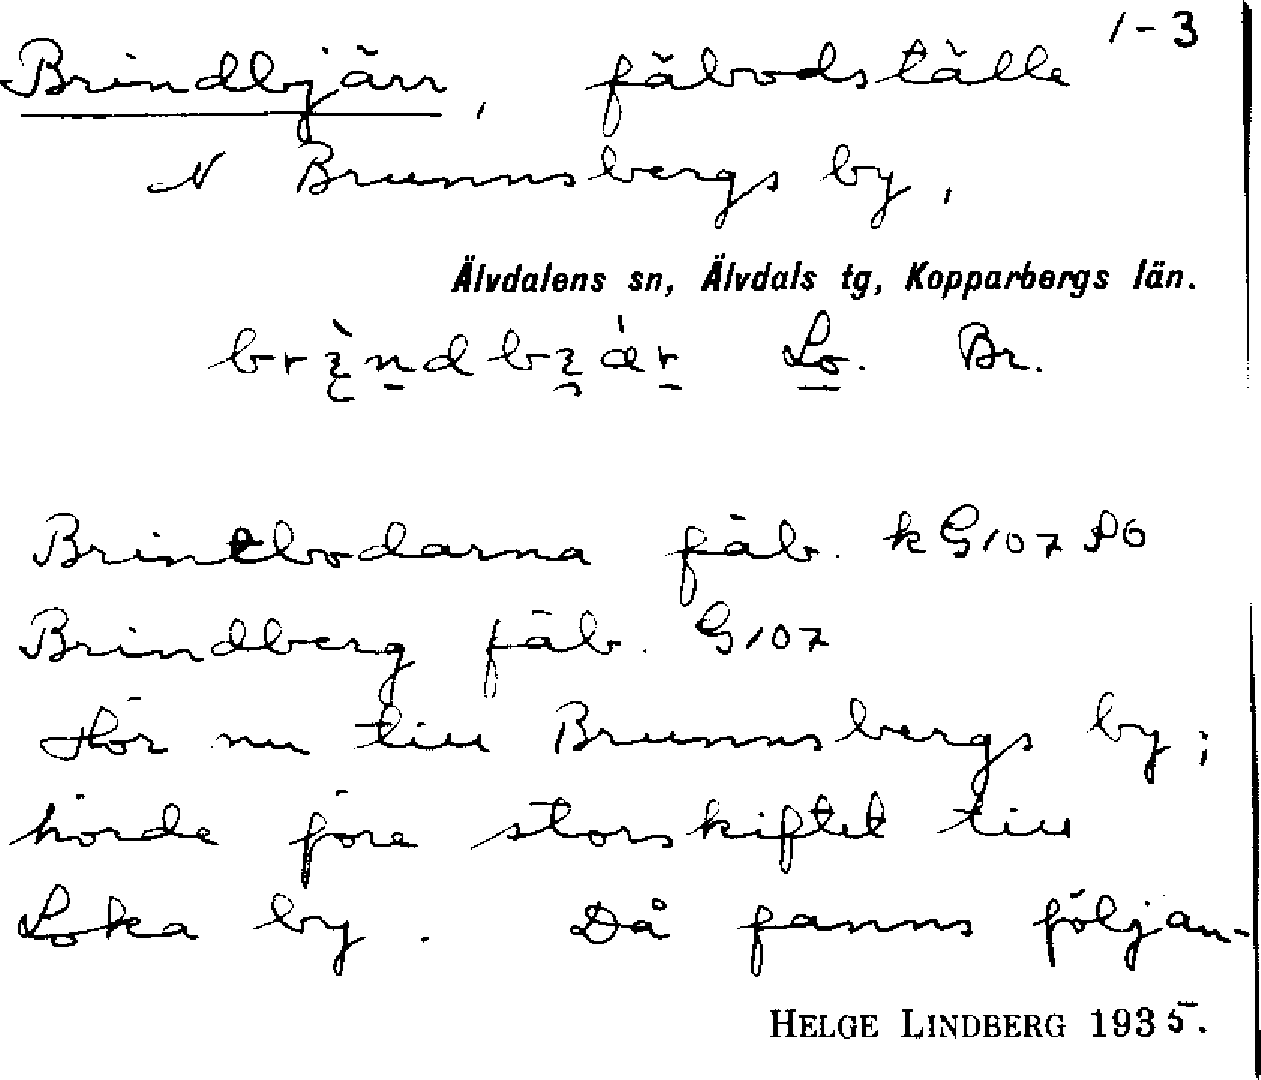 1-3
Brindbjärr, fäbodställe
N Brunnsbergs by,
Älvdalens sn, Älvdals tg, Kopparbergs län.
Lo. Br.
Brintbodarna fäb. k G107 SÖ
Brindberg fäb. G107
Hör nu till Brunnsbergs by;
hörde före storskiftet till
Loka by. Då fanns följan-
HELGE LINDBERG 1935.